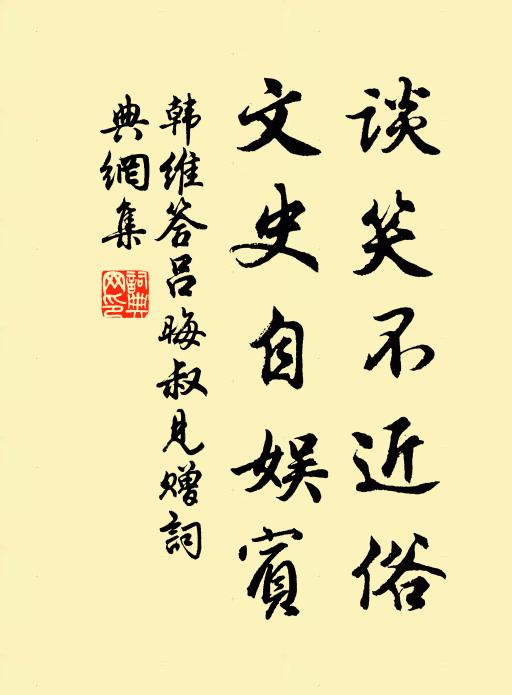 谈笑不近俗
文史自娱賓
韩维答吕晦叔見赠詞
典網集
詞典网印